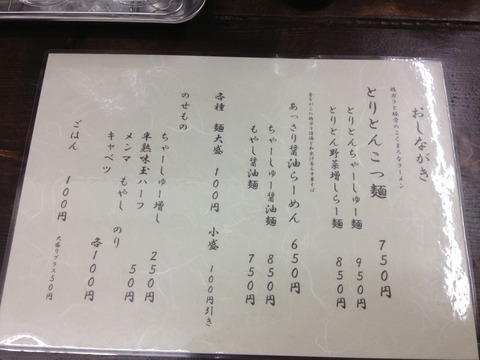 おしながき
鶏ガラと豚骨のこってまろなラーメン
とりとんこつ麺 750円
とりとんちゃーしゅー麺 950円
とりとん野菜増しらー麺 850円
あっさり醤油らーめん 650円
ちゃーしゅー醤油麺 850円
もやし醤油麺 750円
各種 麺大盛 100円 小盛 100円引き
のせもの
ちゃーしゅー増し 250円
半熟味玉ハーフ 50円
メンマ もやし のり
キャベツ 各100円
ごはん 100円 大盛りプラス50円